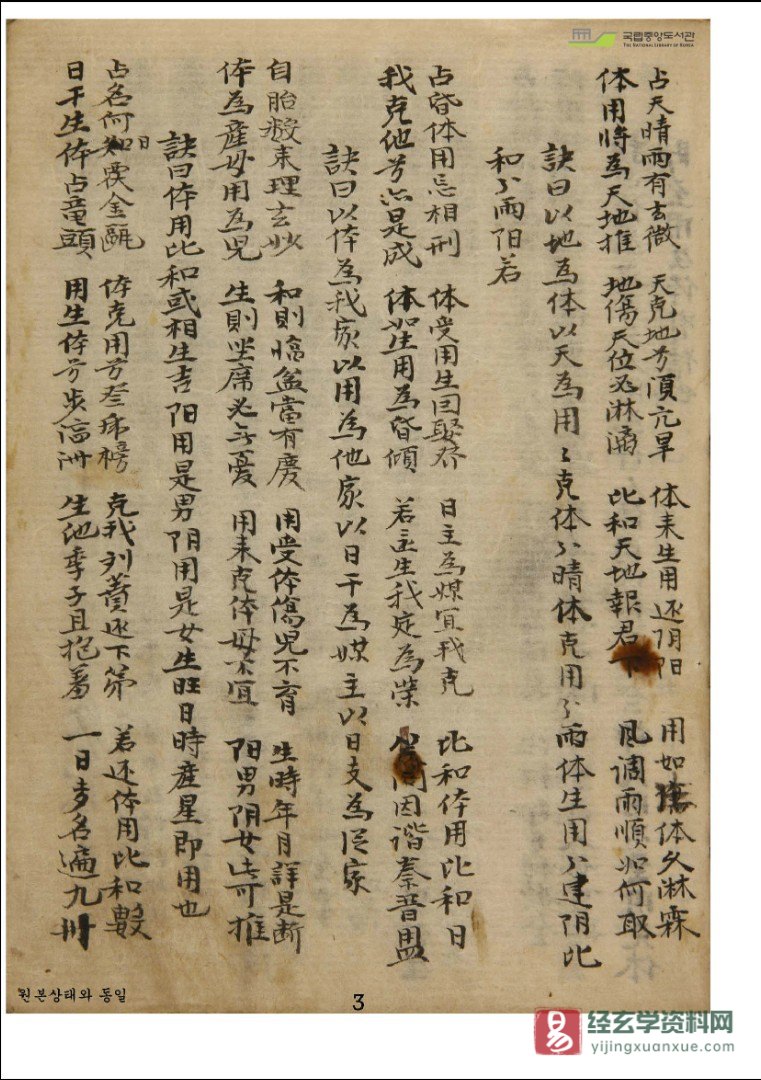 국립중앙도서관
THE NATIONAL LIBRARY OF KOREA
占天晴雨有玄微 天克地兮湏亢旱 体来生用还阴阳 用如 体久淋霖
体用将為天地推 地傷天位必淋漓 比和天地報君 風调雨順如何取
訣曰以地為体以天為用〻克体八晴体克用八雨体生用八建阴比
和八雨阳若
占昏体用忌相刑 体受用生因娶 日主為媒宜我克 比和体用比和日
我克他兮 是成 体 生用為昏傾 若 生我定為榮 因谐秦晋盟
訣曰以体為我家以用為他家以日干為媒主以日支為 家
自胎 来理玄妙 和則臨盆當有慶 用受体傷児不育 生時年月詳是断
体為産母用為児 生則坐席必无憂 用来克体母不宜 阳男阴女 可推
訣曰体用比和或相生吉阳用是男阴用是女生旺日時産星即用也
占名何知 金甌 体克用兮 榜 克我 还下第 若还体用比和數
日干生体占竜頭 用生体兮步 洲 生他季子且抱羞 一日 名遍九州
원본상태와 동일
3
易
经玄学资料网
yijingxuanxue.com